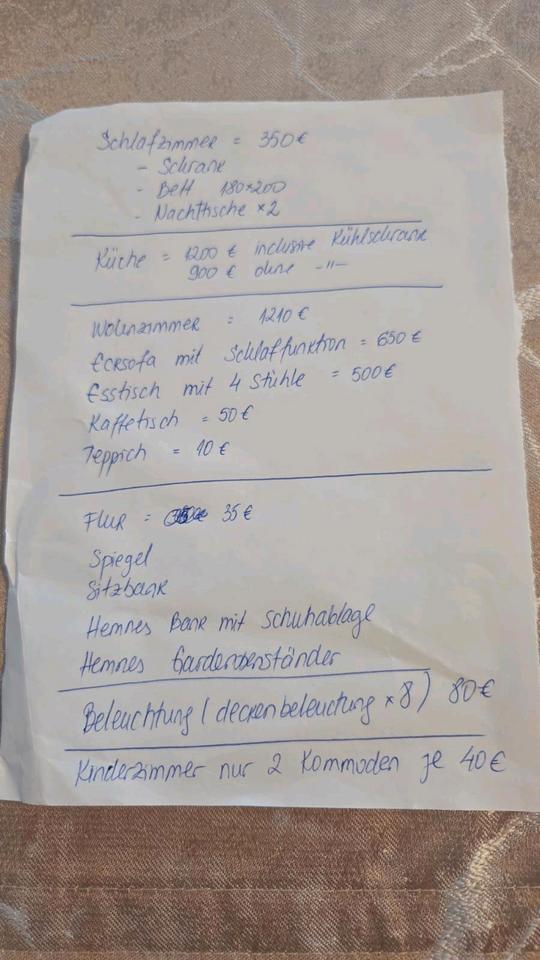 Schlafzimmer = 350€
- Schrank
- Bett 180×200
- Nachttische ×2
Küche = 1200 € inclusive Kühlschrank
900 € ohne -"-
Wohnzimmer = 1210 €
Ecksofa mit Schlaffunktion = 650 €
Esstisch mit 4 Stühle = 500€
Kaffetisch = 50€
Teppich = 10 €
Flur = 35 €
Spiegel
Sitzbank
Hemnes Bank mit Schuhablage
Hemnes Garderobenständer
Beleuchtung (deckenbeleuctung ×8) 80€
Kinderzimmer nur 2 Kommoden je 40€